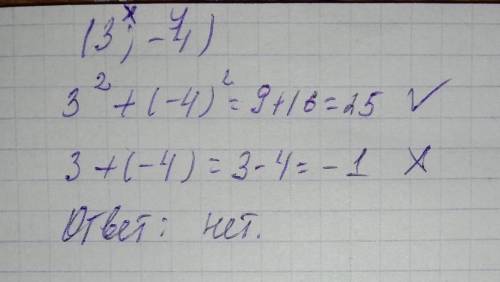 x y
(3; -4)
3² + (-4)² = 9 + 16 = 25 ✓
3 + (-4) = 3 - 4 = -1 ✗
Ответ: нет.